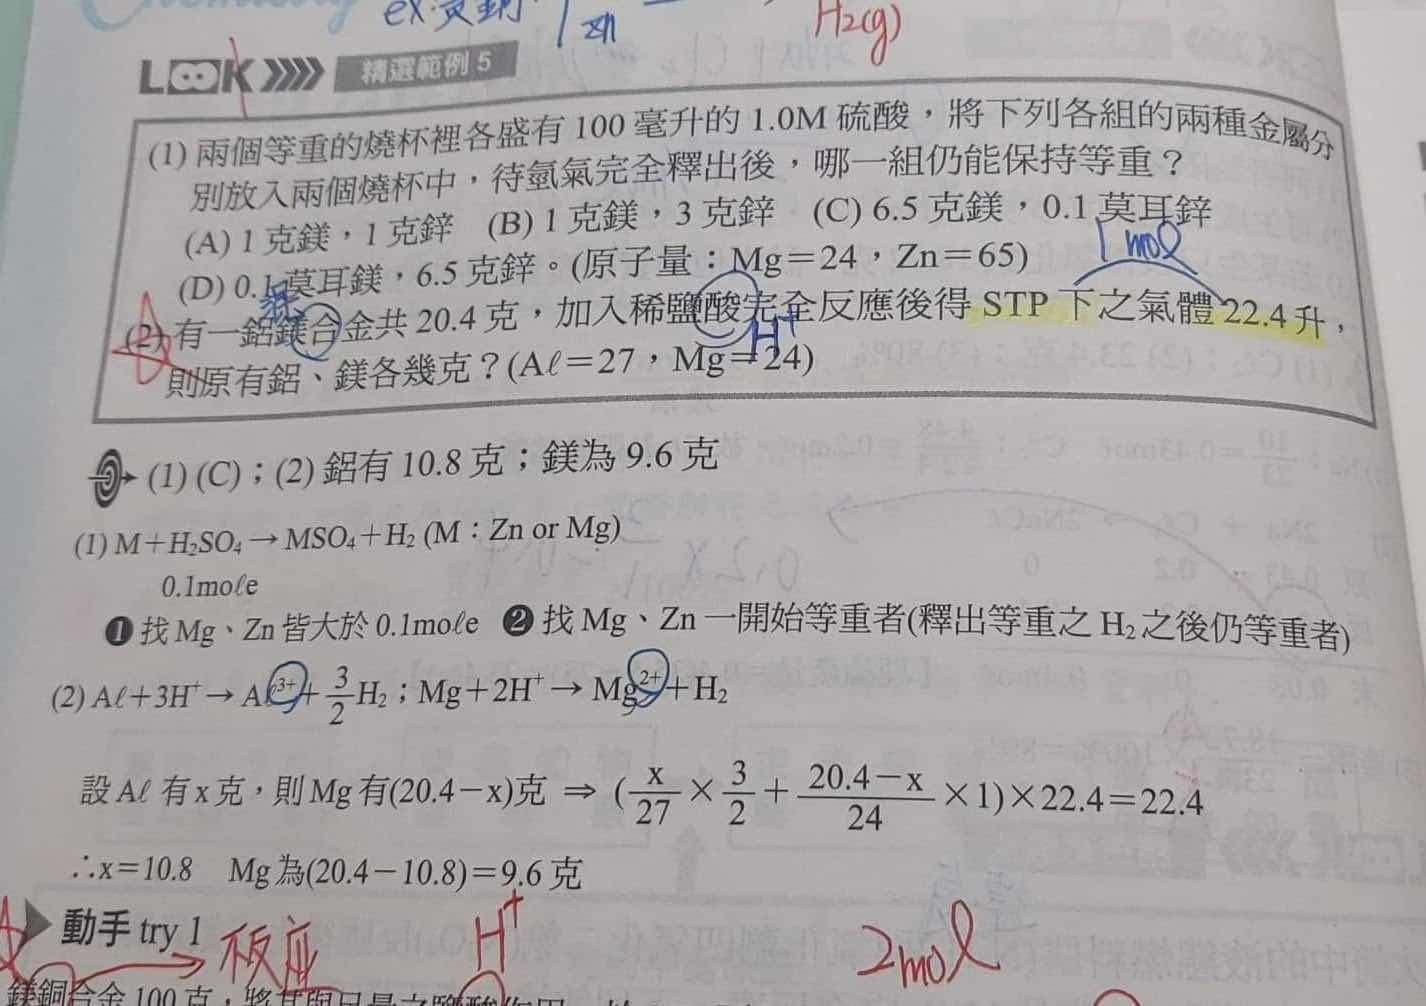 ex:黃銅
Zn
H₂(g)
LOOK 精選範例 5
(1) 兩個等重的燒杯裡各盛有 100 毫升的 1.0M 硫酸,將下列各組的兩種金屬分
別放入兩個燒杯中,待氫氣完全釋出後,哪一組仍能保持等重?
(A) 1 克鎂,1 克鋅 (B) 1 克鎂,3 克鋅 (C) 6.5 克鎂,0.1 莫耳鋅
1 mol
(D) 0.1 莫耳鎂,6.5 克鋅。(原子量:Mg=24,Zn=65)
(2) 有一鋁鎂合金共 20.4 克,加入稀鹽酸完全反應後得 STP 下之氣體 22.4 升,
H⁺
則原有鋁、鎂各幾克?(Aℓ=27,Mg=24)
(1) (C);(2) 鋁有 10.8 克;鎂為 9.6 克
(1) M+H₂SO₄→MSO₄+H₂ (M:Zn or Mg)
0.1moℓe
❶ 找 Mg、Zn 皆大於 0.1moℓe ❷ 找 Mg、Zn 一開始等重者(釋出等重之 H₂ 之後仍等重者)
(2) Aℓ+3H⁺→Aℓ³⁺+3/2 H₂;Mg+2H⁺→Mg²⁺+H₂
設 Aℓ 有 x 克,則 Mg 有(20.4-x)克 ⇒ (x/27×3/2+(20.4-x)/24×1)×22.4=22.4
∴x=10.8 Mg 為(20.4-10.8)=9.6 克
動手 try 1
H⁺
2mol
鎂銅合金 100 克,將其與足量之鹽酸作用